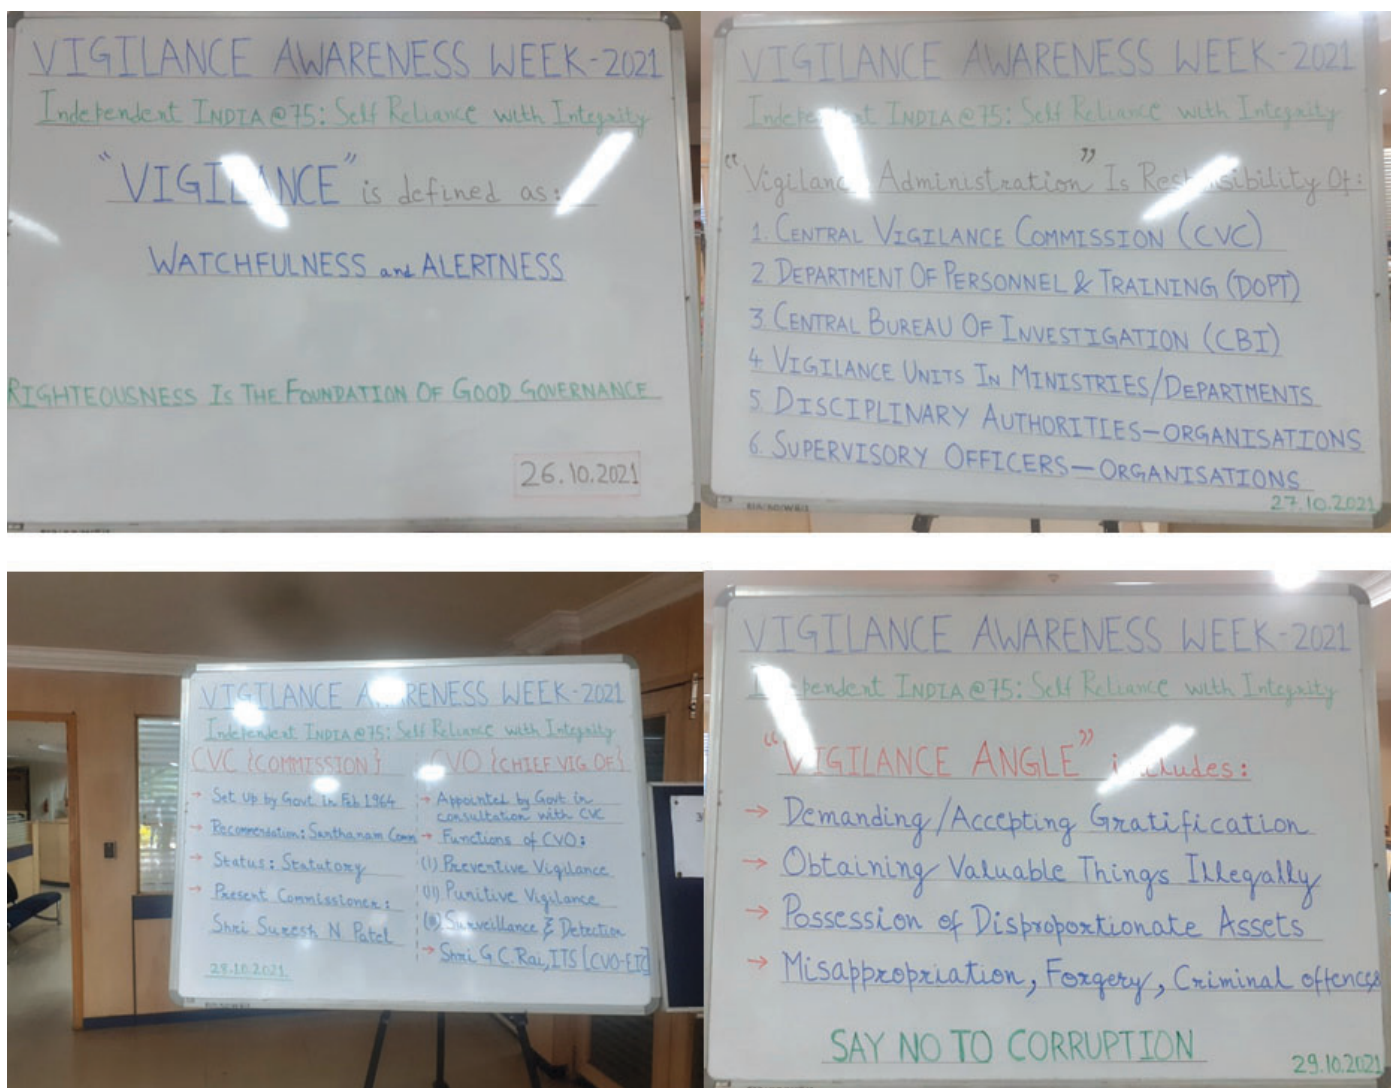 VIGILANCE AWARENESS WEEK-2021
Independent INDIA@75: Self Reliance with Integrity
"VIGILANCE" is defined as:
WATCHFULNESS and ALERTNESS
RIGHTEOUSNESS IS THE FOUNDATION OF GOOD GOVERNANCE
26.10.2021
VIGILANCE AWARENESS WEEK-2021
Independent INDIA@75: Self Reliance with Integrity
"Vigilance Administration" Is Responsibility Of:
1. CENTRAL VIGILANCE COMMISSION (CVC)
2. DEPARTMENT OF PERSONNEL & TRAINING (DOPT)
3. CENTRAL BUREAU OF INVESTIGATION (CBI)
4. VIGILANCE UNITS IN MINISTRIES/DEPARTMENTS
5. DISCIPLINARY AUTHORITIES-ORGANISATIONS
6. SUPERVISORY OFFICERS-ORGANISATIONS
27.10.2021
VIGILANCE AWARENESS WEEK-2021
Independent INDIA@75: Self Reliance with Integrity
CVC {COMMISSION}
→ Set Up by Govt. in Feb 1964
→ Recommendation: Santhanam Comm
→ Status: Statutory
→ Present Commissioner:
Shri Suresh N Patel
28.10.2021
CVO {CHIEF VIG OF}
→ Appointed by Govt in
consultation with CVC
→ Functions of CVO:
(i) Preventive Vigilance
(ii) Punitive Vigilance
(iii) Surveillance & Detection
→ Shri G.C. Rai, ITS
VIGILANCE AWARENESS WEEK-2021
Independent INDIA@75: Self Reliance with Integrity
"VIGILANCE ANGLE" includes:
→ Demanding/Accepting Gratification
→ Obtaining Valuable Things Illegally
→ Possession of Disproportionate Assets
→ Misappropriation, Forgery, Criminal offences
SAY NO TO CORRUPTION
29.10.2021